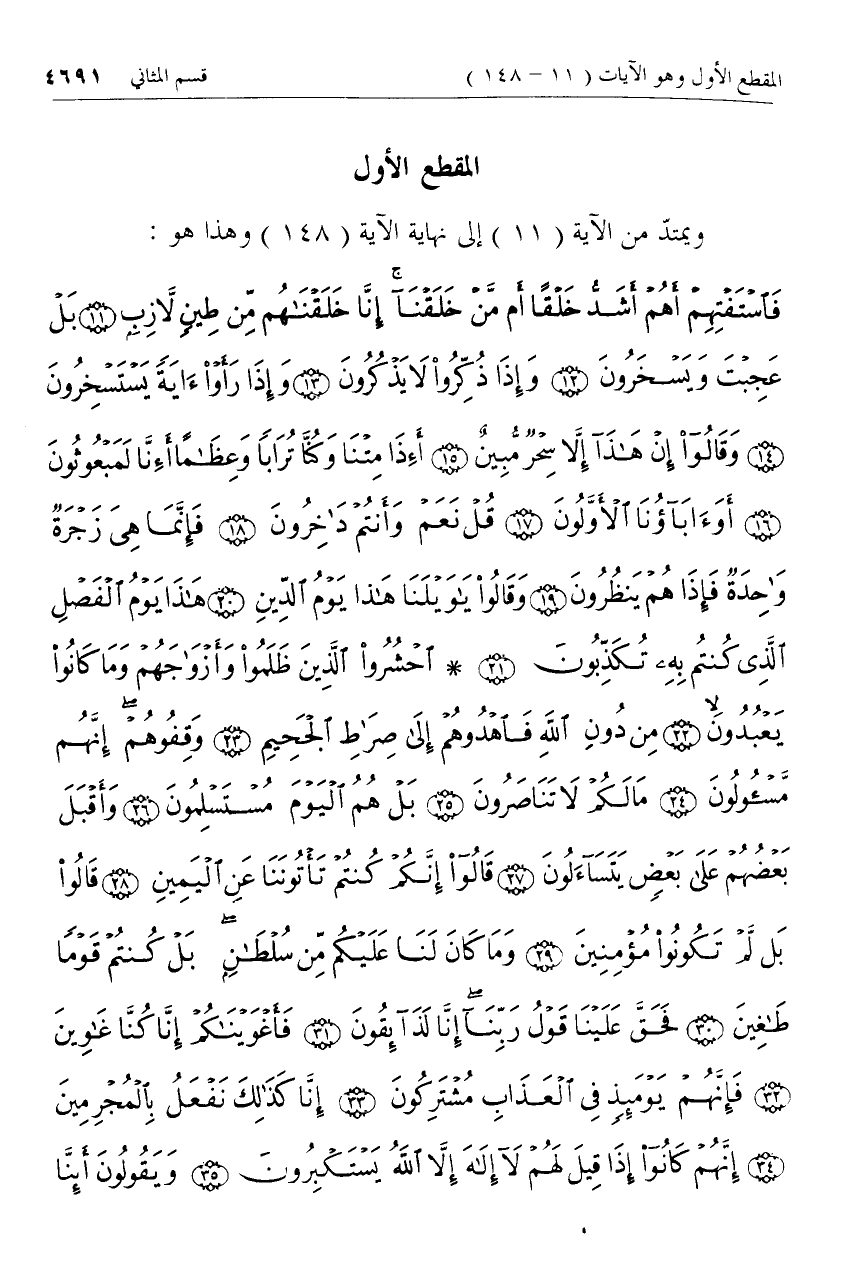 المقطع الأول وهو الآيات ( ١١ - ١٤٨ ) قسم المثاني ٤٦٩١
المقطع الأول
ويمتدّ من الآية ( ١١ ) إلى نهاية الآية ( ١٤٨ ) وهذا هو :
فَٱسْتَفْتِهِمْ أَهُمْ أَشَدُّ خَلْقًا أَم مَّنْ خَلَقْنَآ ۚ إِنَّا خَلَقْنَٰهُم مِّن طِينٍ لَّازِبٍ ﴿١١﴾ بَلْ
عَجِبْتَ وَيَسْخَرُونَ ﴿١٢﴾ وَإِذَا ذُكِّرُوا۟ لَا يَذْكُرُونَ ﴿١٣﴾ وَإِذَا رَأَوْا۟ ءَايَةً يَسْتَسْخِرُونَ
﴿١٤﴾ وَقَالُوٓا۟ إِنْ هَٰذَآ إِلَّا سِحْرٌ مُّبِينٌ ﴿١٥﴾ أَءِذَا مِتْنَا وَكُنَّا تُرَابًا وَعِظَٰمًا أَءِنَّا لَمَبْعُوثُونَ
﴿١٦﴾ أَوَءَابَآؤُنَا ٱلْأَوَّلُونَ ﴿١٧﴾ قُلْ نَعَمْ وَأَنتُمْ دَٰخِرُونَ ﴿١٨﴾ فَإِنَّمَا هِىَ زَجْرَةٌ
وَٰحِدَةٌ فَإِذَا هُمْ يَنظُرُونَ ﴿١٩﴾ وَقَالُوا۟ يَٰوَيْلَنَا هَٰذَا يَوْمُ ٱلدِّينِ ﴿٢٠﴾ هَٰذَا يَوْمُ ٱلْفَصْلِ
ٱلَّذِى كُنتُم بِهِۦ تُكَذِّبُونَ ﴿٢١﴾ * ٱحْشُرُوا۟ ٱلَّذِينَ ظَلَمُوا۟ وَأَزْوَٰجَهُمْ وَمَا كَانُوا۟
يَعْبُدُونَ ﴿٢٢﴾ۙ مِن دُونِ ٱللَّهِ فَٱهْدُوهُمْ إِلَىٰ صِرَٰطِ ٱلْجَحِيمِ ﴿٢٣﴾ وَقِفُوهُمْ ۖ إِنَّهُم
مَّسْـُٔولُونَ ﴿٢٤﴾ مَا لَكُمْ لَا تَنَاصَرُونَ ﴿٢٥﴾ بَلْ هُمُ ٱلْيَوْمَ مُسْتَسْلِمُونَ ﴿٢٦﴾ وَأَقْبَلَ
بَعْضُهُمْ عَلَىٰ بَعْضٍ يَتَسَآءَلُونَ ﴿٢٧﴾ قَالُوٓا۟ إِنَّكُمْ كُنتُمْ تَأْتُونَنَا عَنِ ٱلْيَمِينِ ﴿٢٨﴾ قَالُوا۟
بَل لَّمْ تَكُونُوا۟ مُؤْمِنِينَ ﴿٢٩﴾ وَمَا كَانَ لَنَا عَلَيْكُم مِّن سُلْطَٰنٍۭ ۖ بَلْ كُنتُمْ قَوْمًا
طَٰغِينَ ﴿٣٠﴾ فَحَقَّ عَلَيْنَا قَوْلُ رَبِّنَآ ۖ إِنَّا لَذَآئِقُونَ ﴿٣١﴾ فَأَغْوَيْنَٰكُمْ إِنَّا كُنَّا غَٰوِينَ
﴿٣٢﴾ فَإِنَّهُمْ يَوْمَئِذٍ فِى ٱلْعَذَابِ مُشْتَرِكُونَ ﴿٣٣﴾ إِنَّا كَذَٰلِكَ نَفْعَلُ بِٱلْمُجْرِمِينَ
﴿٣٤﴾ إِنَّهُمْ كَانُوٓا۟ إِذَا قِيلَ لَهُمْ لَآ إِلَٰهَ إِلَّا ٱللَّهُ يَسْتَكْبِرُونَ ﴿٣٥﴾ وَيَقُولُونَ أَئِنَّا